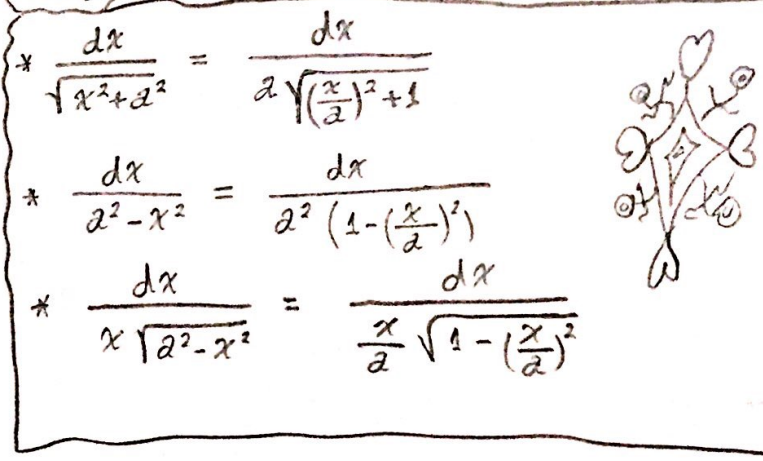 * dx/√(x²+a²) = dx/(a√((x/a)²+1))
* dx/(a²-x²) = dx/(a²(1-(x/a)²))
* dx/(x√(a²-x²)) = dx/((x/a)√(1-(x/a)²))